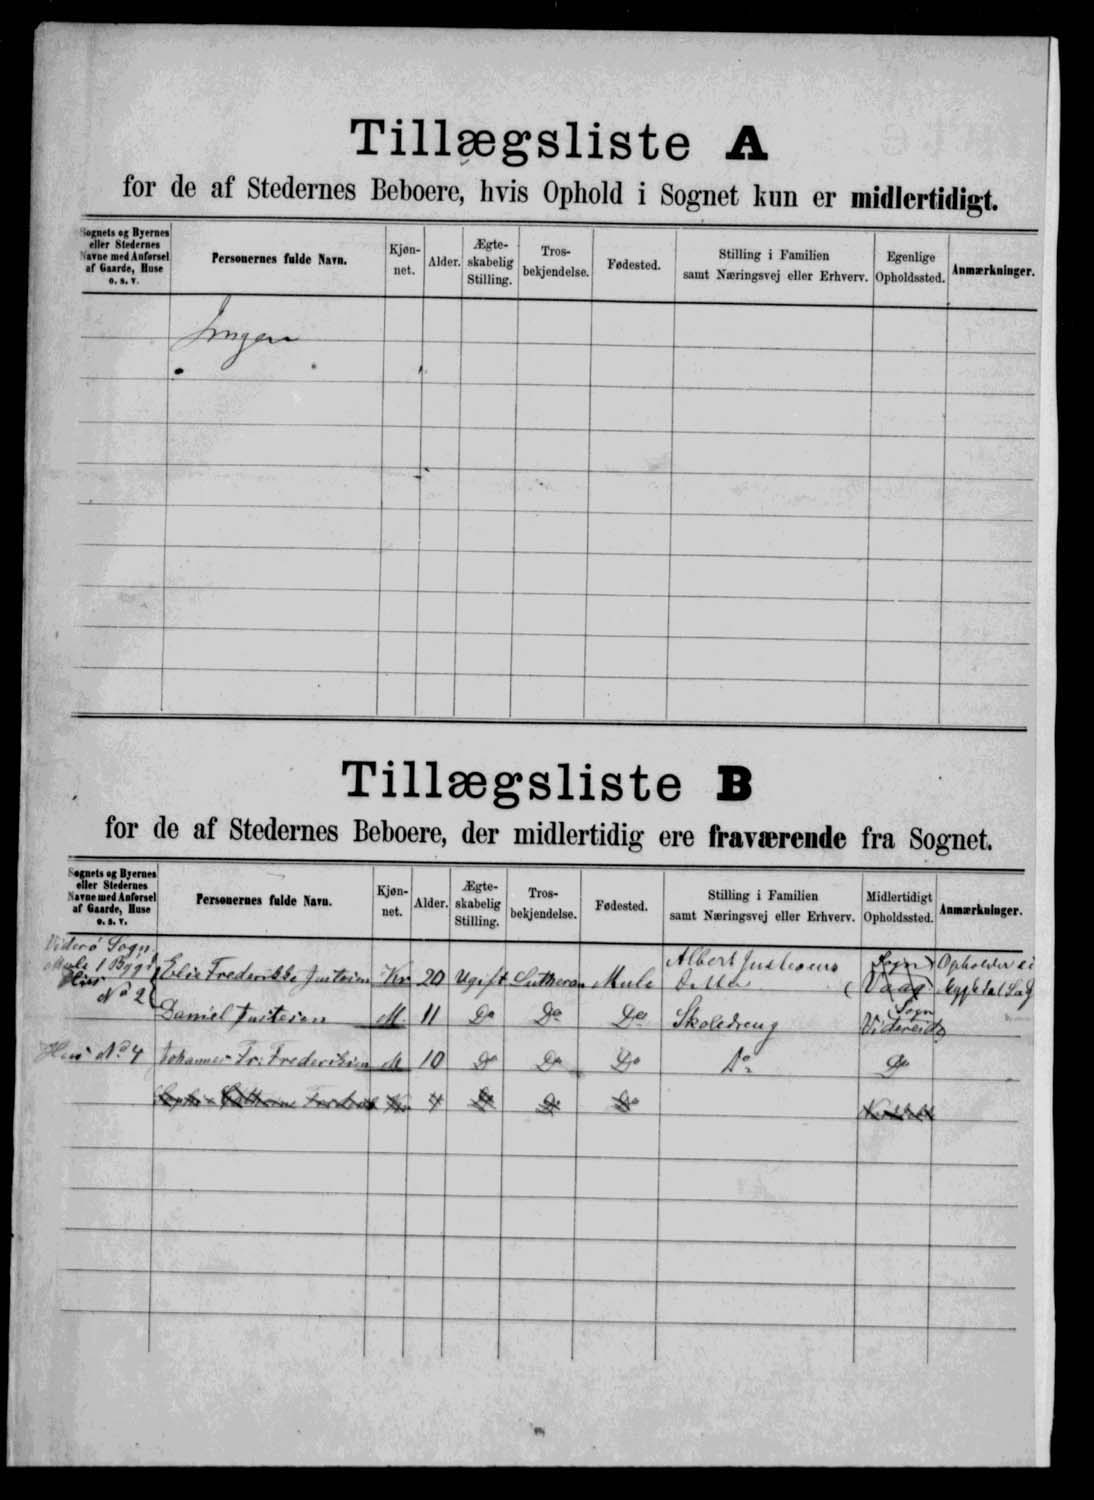 Tillægsliste A
for de af Stedernes Beboere, hvis Ophold i Sognet kun er midlertidigt.
Sognets og Byernes eller Stedernes Navne med Anførsel af Gaarde, Huse o. s. v.
Personernes fulde Navn.
Kjøn-net.
Alder.
Ægte-skabelig Stilling.
Tros-bekjendelse.
Fødested.
Stilling i Familien samt Næringsvej eller Erhverv.
Egenlige Opholdssted.
Anmærkninger.
Ingen
Tillægsliste B
for de af Stedernes Beboere, der midlertidig ere fraværende fra Sognet.
Sognets og Byernes eller Stedernes Navne med Anførsel af Gaarde, Huse o. s. v.
Personernes fulde Navn.
Kjøn-net.
Alder.
Ægte-skabelig Stilling.
Tros-bekjendelse.
Fødested.
Stilling i Familien samt Næringsvej eller Erhverv.
Midlertidigt Opholdssted.
Anmærkninger.
Viderø Sogn
Mule 1 Bygd
Hus No 2
Elie Frederikke Justesen Kv 20 Ugift Lutheran Mule Albert Justesens Datter Sogn Vaag Opholder si
Daniel Justesen M. 11 Do Do Do Skoledreng Sogn Videreide
Hus No 4 Johannes Fr. Frederiksen M 10 Do Do Do Do Do
Kv 4 Do Do Do